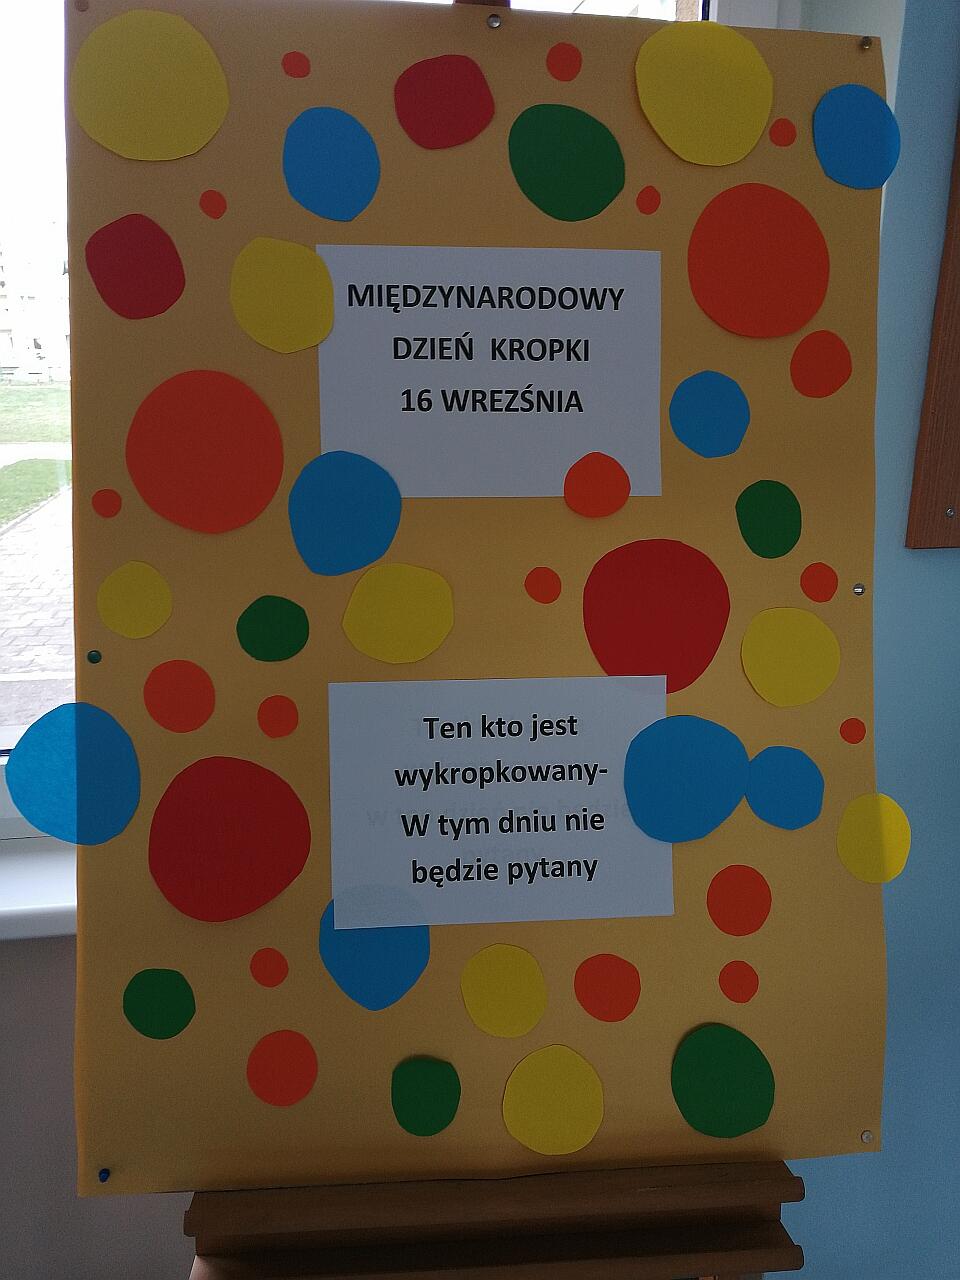 MIĘDZYNARODOWY
DZIEŃ KROPKI
16 WREZŚNIA
Ten kto jest
wykropkowany-
W tym dniu nie
będzie pytany